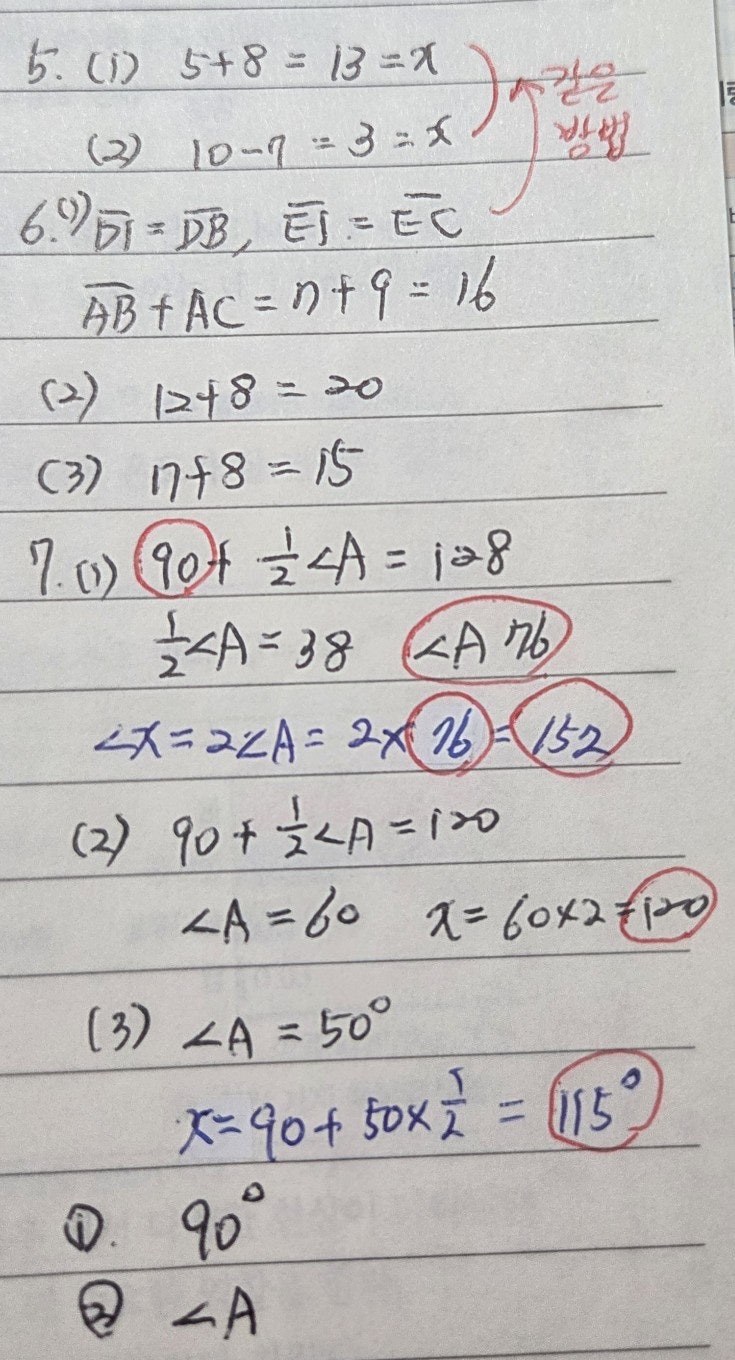 5. (1) 5+8 = 13 = x
같은
방법
(2) 10-7 = 3 = x
6.(1) D̅I̅ = D̅B̅, E̅I̅ = E̅C̅
A̅B̅ + AC = 7+9 = 16
(2) 12+8 = 20
(3) 17+8 = 15
7. (1) 90+ 1/2 ∠A = 128
1/2 ∠A = 38 ∠A 76
∠x = 2∠A = 2× 76 = 152
(2) 90 + 1/2 ∠A = 120
∠A = 60 x = 60×2 = 120
(3) ∠A = 50°
x = 90 + 50 × 1/2 = 115°
①. 90°
② ∠A